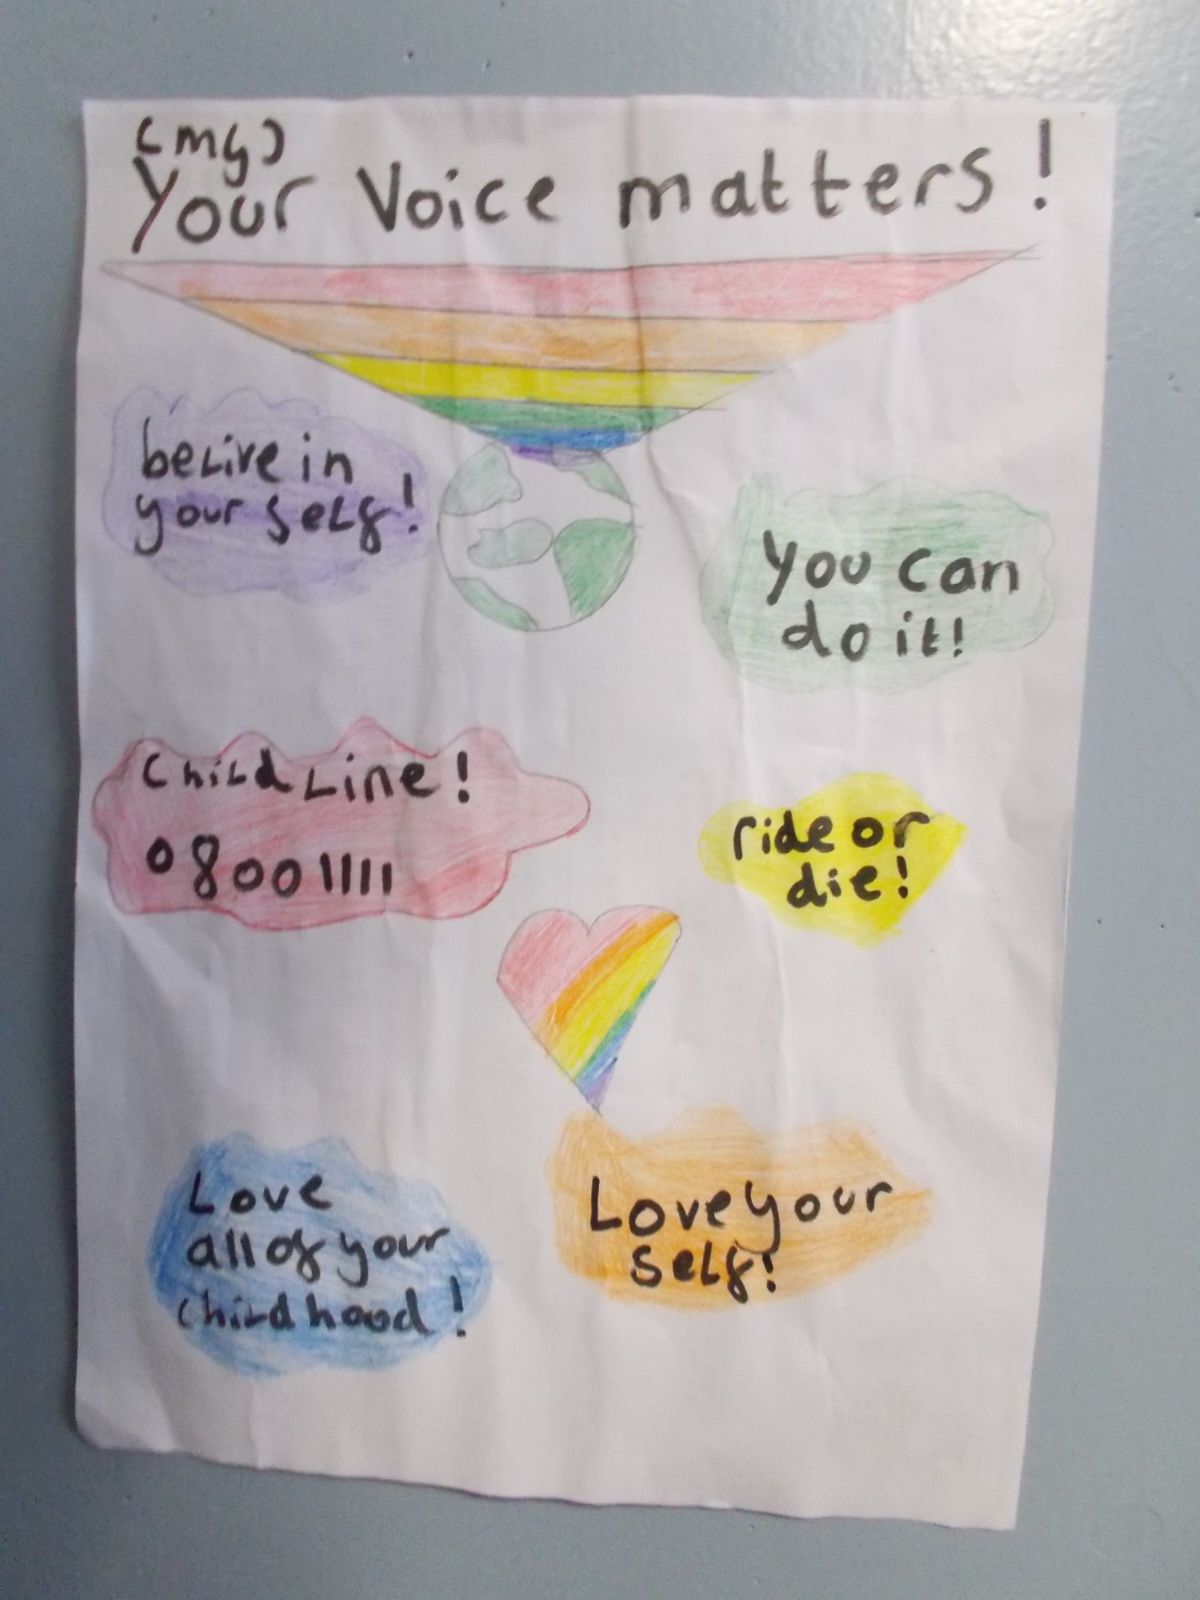 (my)
Your Voice matters!
belive in
your self!
You can
do it!
Child Line!
08001111
ride or
die!
Love
all of your
child hood!
Love your
self!